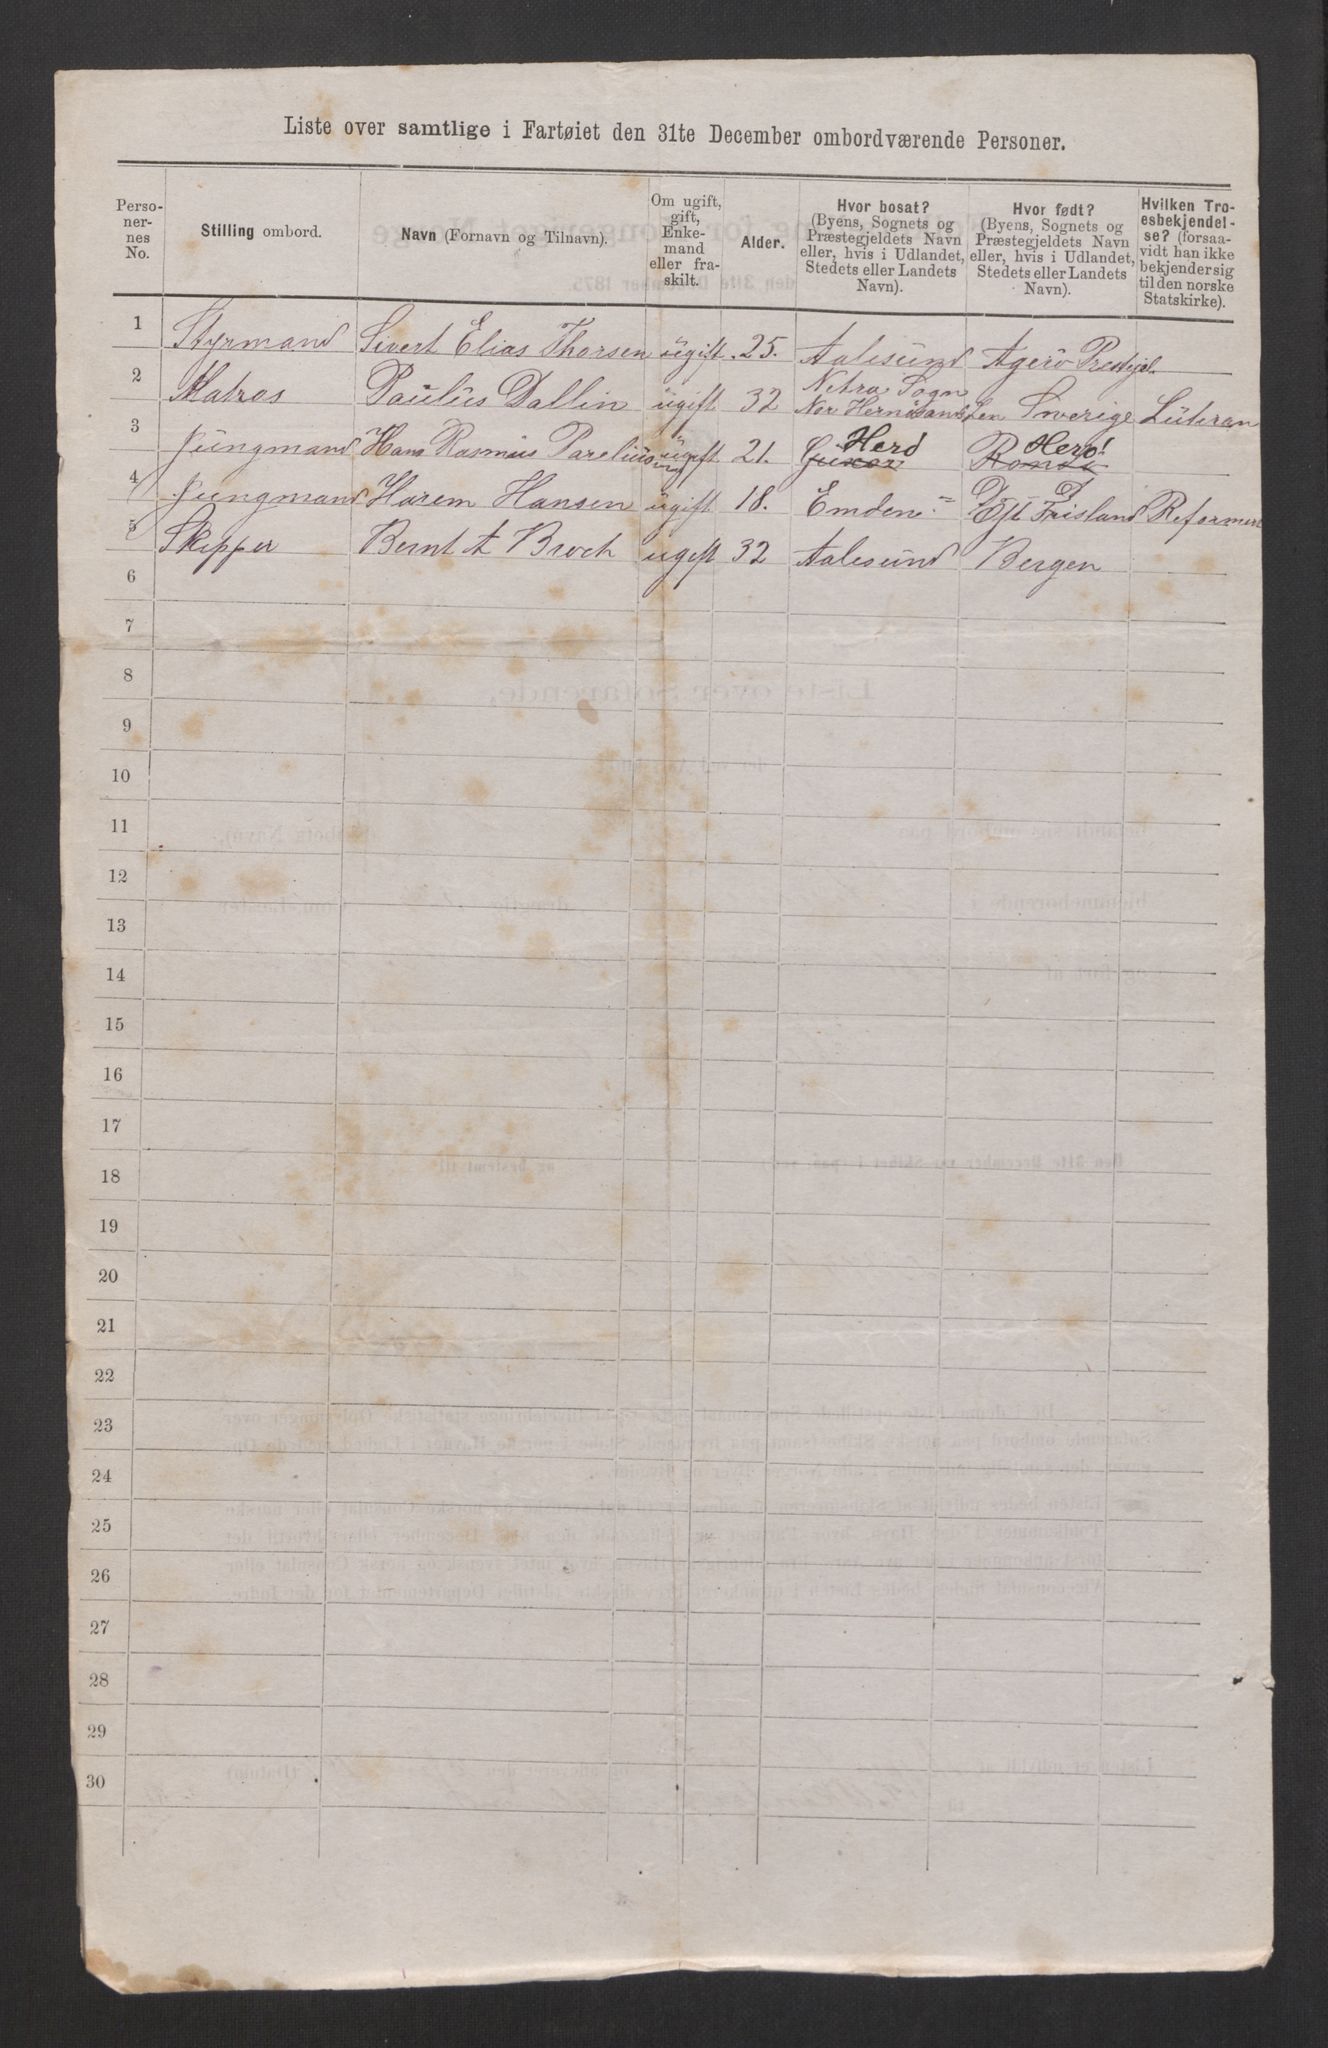 Liste over samtlige i Fartøiet den 31te December ombordværende Personer.
Perso-
ner-
nes
No.
Stilling ombord.
Navn (Fornavn og Tilnavn).
Om ugift,
gift,
Enke-
mand
eller fra-
skilt.
Alder.
Hvor bosat?
(Byens, Sognets og
Præstegjeldets Navn
eller, hvis i Udlandet,
Stedets eller Landets
Navn).
Hvor født?
(Byens, Sognets og
Præstegjeldets Navn
eller, hvis i Udlandet,
Stedets eller Landets
Navn).
Hvilken Tro-
esbekjendel-
se? (forsaa-
vidt han ikke
bekjender sig
til den norske
Statskirke).
1 Styrmand Sivert Elias Thorsen ugift 25. Aalesund Agerö Prestgj.
2 Matros Paulus Dallin ugift 32 Netra Sogn
Nor Hernösands Len Sverige Luteran
3 Jungmand Hans Rasmus Parelius ugift 21. Herd Herö
4 Jungmand Harem Hansen ugift 18. Emden Öst Frisland Reformert
5 Skipper Bernt A Broch ugift 32 Aalesund Bergen
6
7
8
9
10
11
12
13
14
15
16
17
18
19
20
21
22
23
24
25
26
27
28
29
30